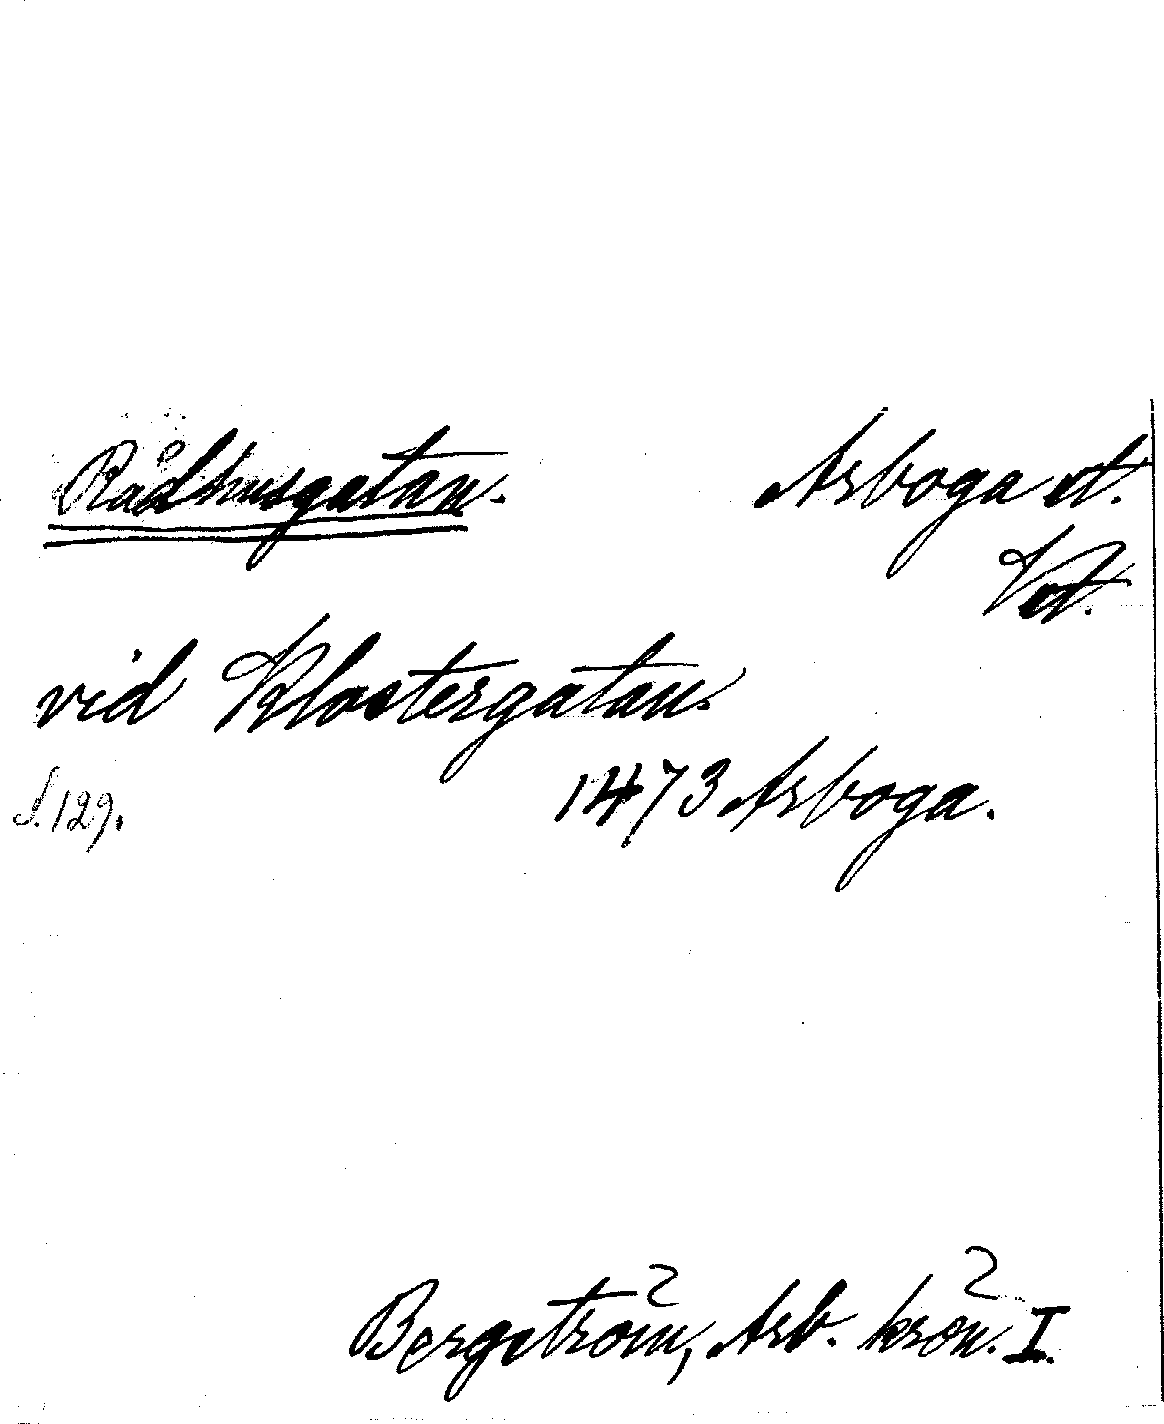 Rådhusgatan. Arboga st.
Vst.
vid Klostergatan.
S. 129. 1473 Arboga.
Bergström, Arb. krön. I.